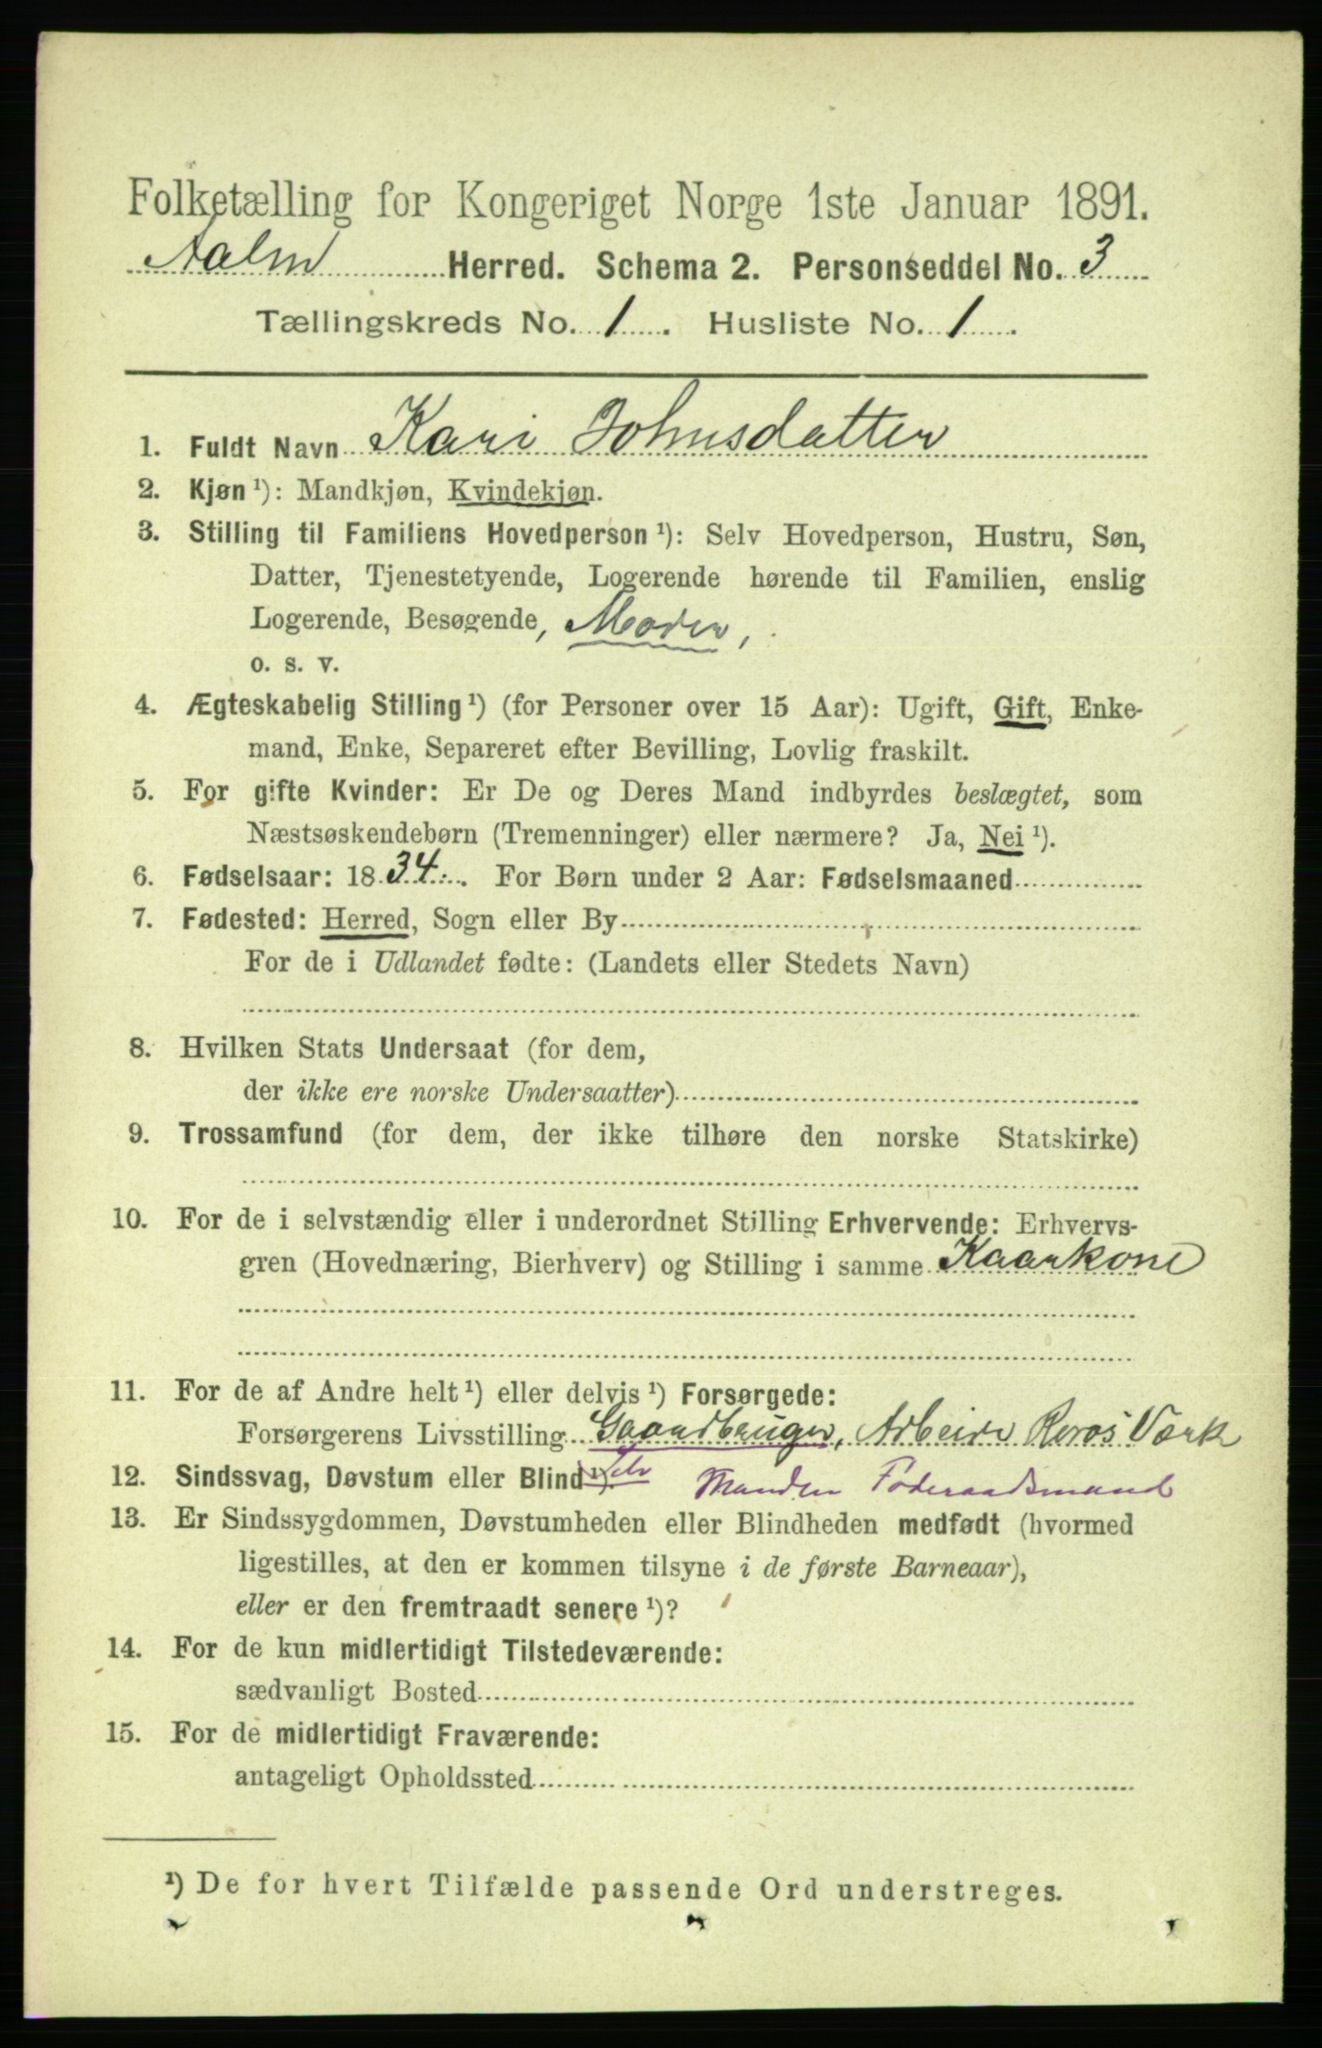 Folketælling for Kongeriget Norge 1ste Januar 1891.
Aalen Herred. Schema 2. Personseddel No. 3
Tællingskreds No. 1. Husliste No. 1.
1. Fuldt Navn Kari Johnsdatter
2. Kjøn ¹): Mandkjøn, Kvindekjøn.
3. Stilling til Familiens Hovedperson ¹): Selv Hovedperson, Hustru, Søn,
Datter, Tjenestetyende, Logerende hørende til Familien, enslig
Logerende, Besøgende, Moder,
o. s. v.
4. Ægteskabelig Stilling ¹) (for Personer over 15 Aar): Ugift, Gift, Enke-
mand, Enke, Separeret efter Bevilling, Lovlig fraskilt.
5. For gifte Kvinder: Er De og Deres Mand indbyrdes beslægtet, som
Næstsøskendebørn (Tremenninger) eller nærmere? Ja, Nei ¹).
6. Fødselsaar: 18 34. For Børn under 2 Aar: Fødselsmaaned
7. Fødested: Herred, Sogn eller By
For de i Udlandet fødte: (Landets eller Stedets Navn)
8. Hvilken Stats Undersaat (for dem,
der ikke ere norske Undersaatter)
9. Trossamfund (for dem, der ikke tilhøre den norske Statskirke)
10. For de i selvstændig eller i underordnet Stilling Erhvervende: Erhvervs-
gren (Hovednæring, Bierhverv) og Stilling i samme Kaarkone
11. For de af Andre helt ¹) eller delvis ¹) Forsørgede:
Forsørgerens Livsstilling Gaardbruger, Arbeide Røros Værk
12. Sindssvag, Døvstum eller Blind ¹). Manden Føderaadsmand
13. Er Sindssygdommen, Døvstumheden eller Blindheden medfødt (hvormed
ligestilles, at den er kommen tilsyne i de første Barneaar),
eller er den fremtraadt senere ¹)?
14. For de kun midlertidigt Tilstedeværende:
sædvanligt Bosted
15. For de midlertidigt Fraværende:
antageligt Opholdssted
¹) De for hvert Tilfælde passende Ord understreges.